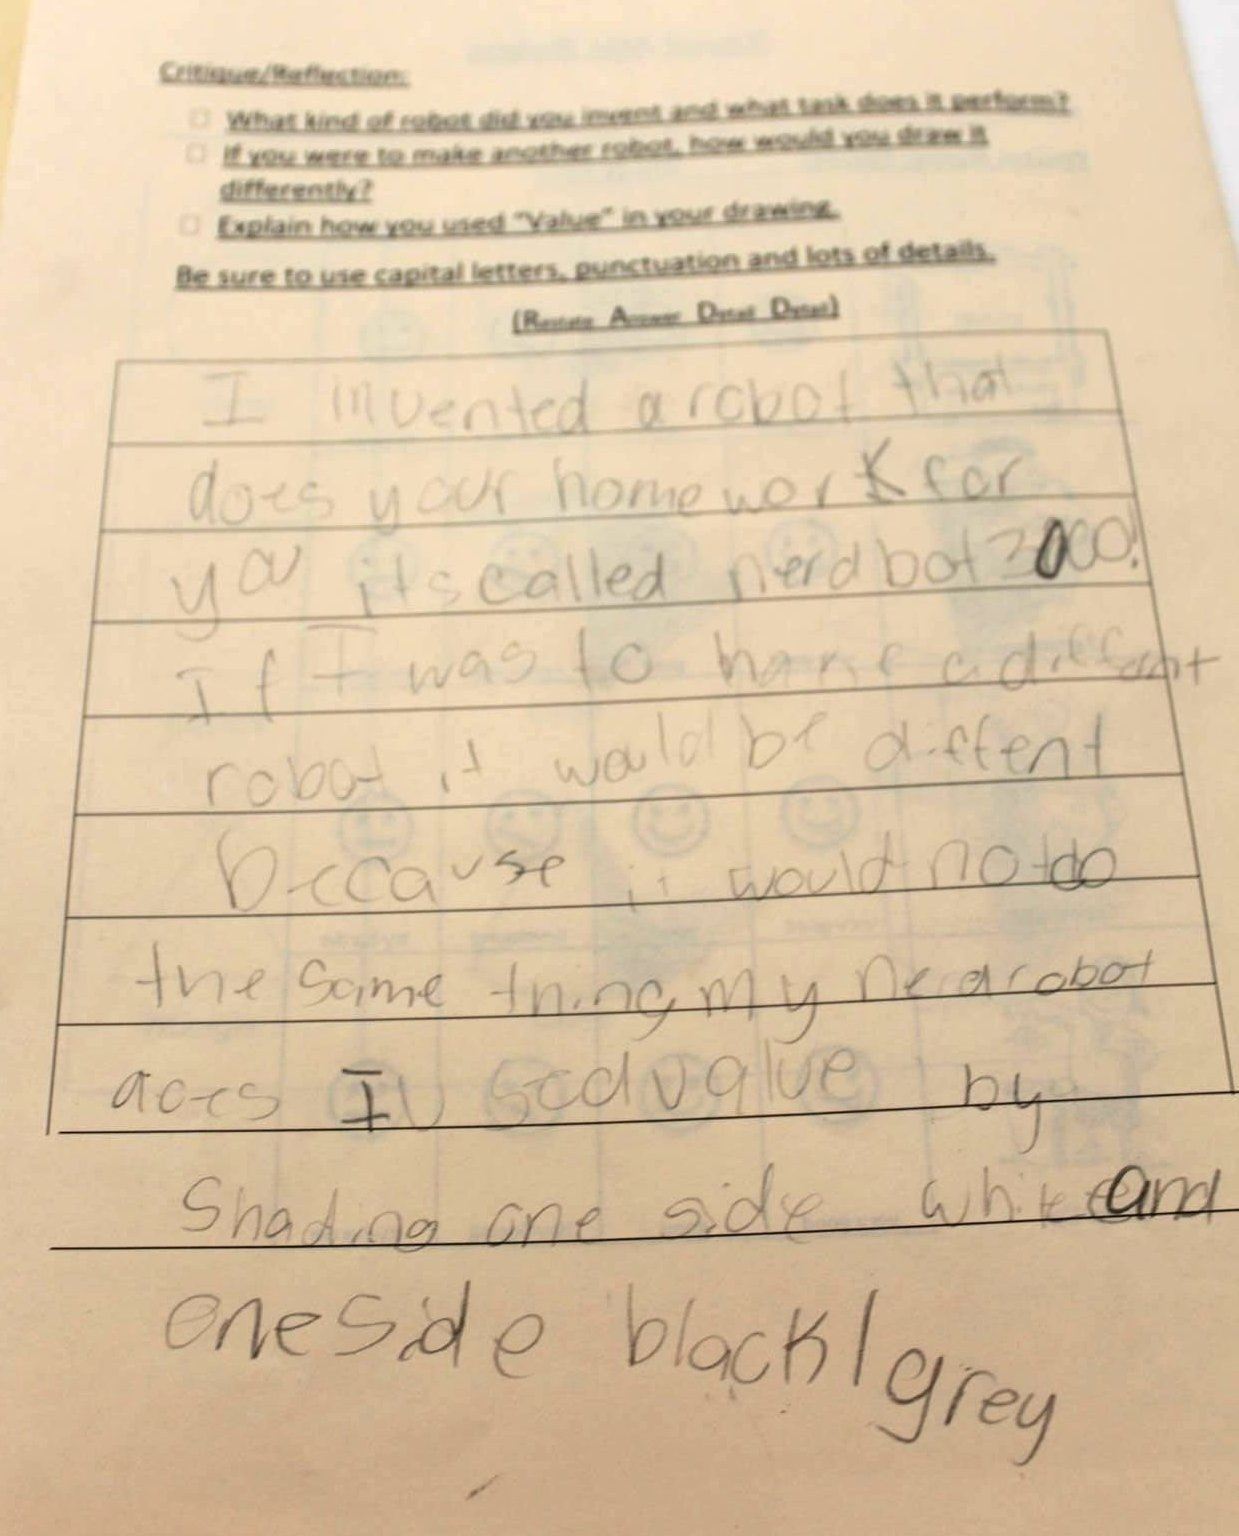 Critique/Reflection:
What kind of robot did you invent and what task does it perform?
If you were to make another robot, how would you draw it
differently?
Explain how you used "Value" in your drawing.
Be sure to use capital letters, punctuation and lots of details.
(Restate Answer Detail Detail)
I invented a robot that
does your homework for
you its called nerdbot 3000!
If I was to have a different
robot it would be diffent
because it would not do
the same thing my nerd robot
does I used value by
Shading one side white and
one side black/grey